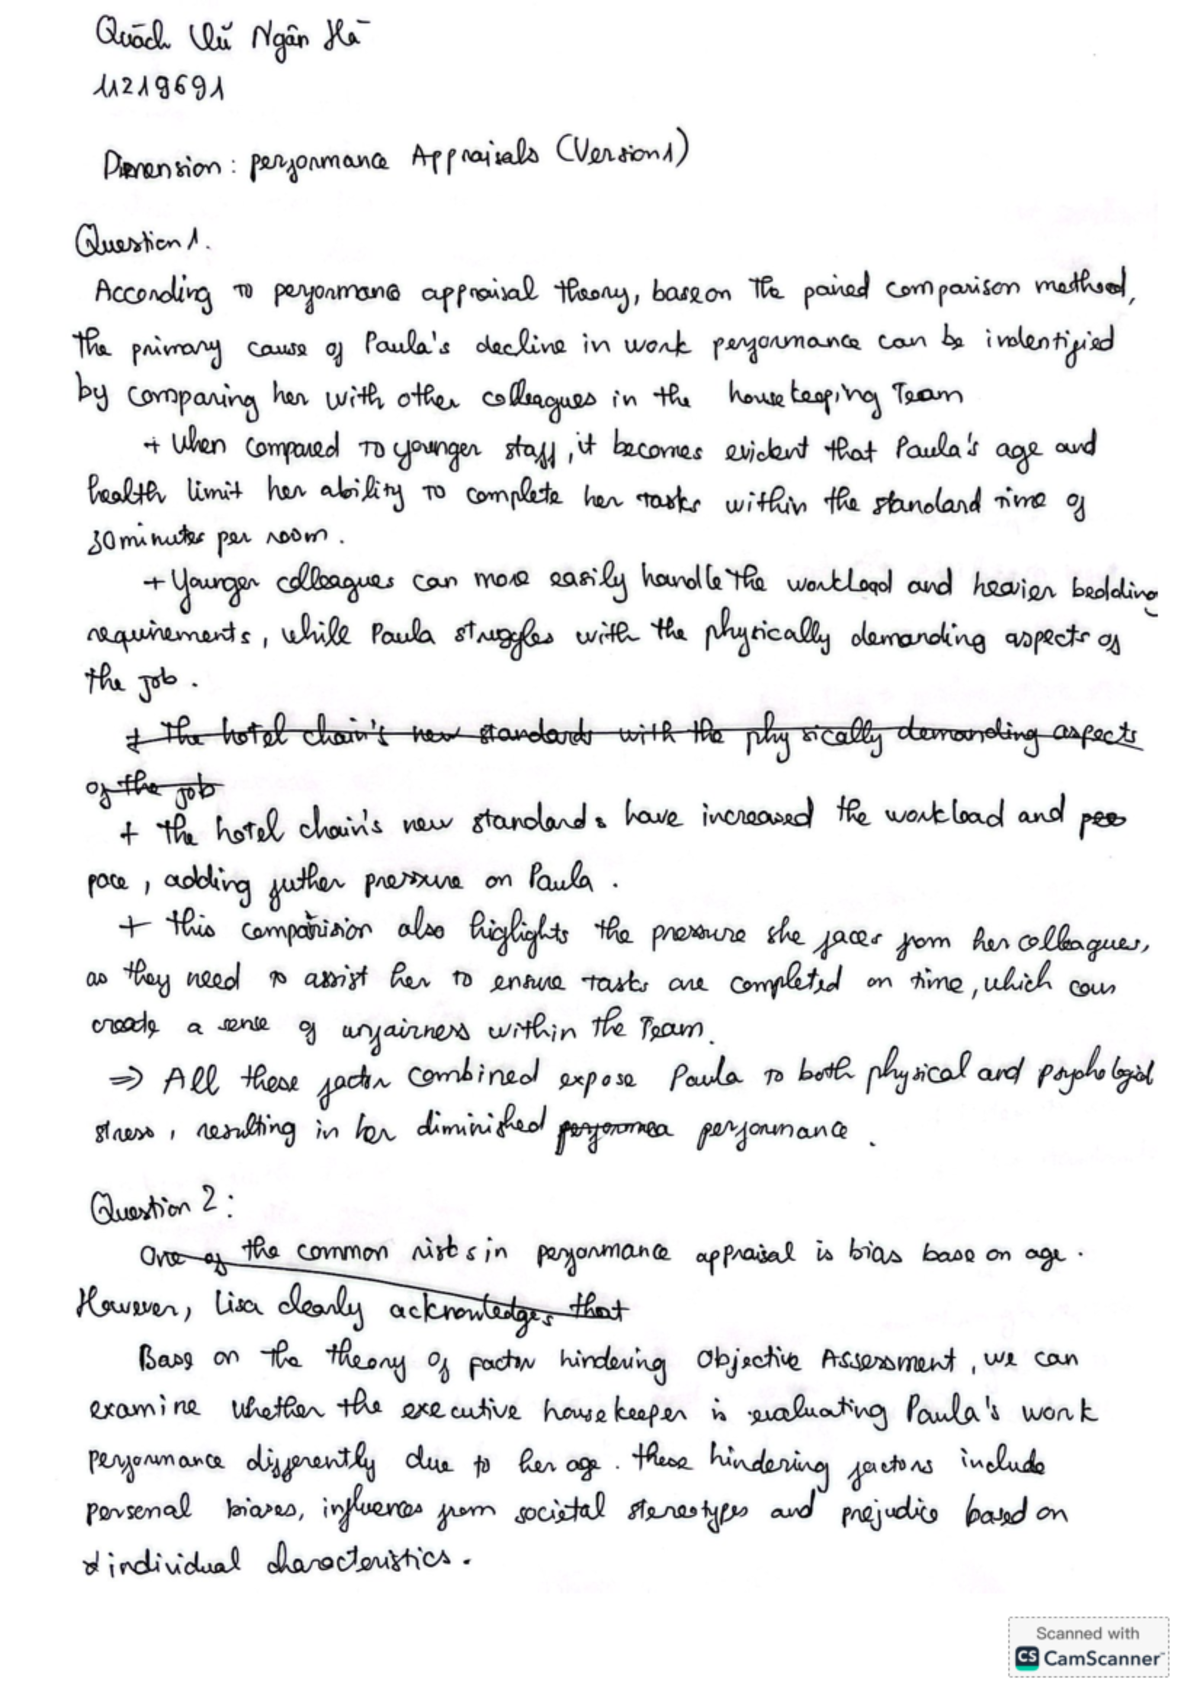 Quách Vũ Ngân Hà
11219691
Dimension: performance Appraisals (Version1)
Question 1.
According to performane appraisal theory, base on the paired comparison method,
the primary cause of Paula's decline in work performance can be indentified
by comparing her with other colleagues in the housekeeping Team
+ When compared to younger staff, it becomes evident that Paula's age and
health limit her ability to complete her tasks within the standard time of
30 minutes per room.
+ Younger colleagues can more easily handle the workload and heavier bedding
requirements, while Paula struggles with the physically demanding aspects of
the job.
+ the hotel chain's new standards with the physically demanding aspects
of the job
+ the hotel chain's new standards have increased the workload and pee
pace, adding futher pressure on Paula.
+ this comparision also higlights the pressure she faces from her colleagues,
as they need to assist her to ensure tasks are completed on time, which can
create a sense of unfairness within the Team.
⇒ All these factor combined expose Paula to both physical and psychologial
stress, resulting in her diminished performea performance.
Question 2:
One of the common risks in performance appraisal is bias base on age.
However, Lisa clearly acknowledges that
Base on the theory of factor hindering Objective Assessment, we can
examine whether the executive housekeeper is evaluating Paula's work
performance differently due to her age. these hindering factors include
personal biases, influences from societal stereotypes and prejudice based on
individual characteristics.
Scanned with
CS CamScanner